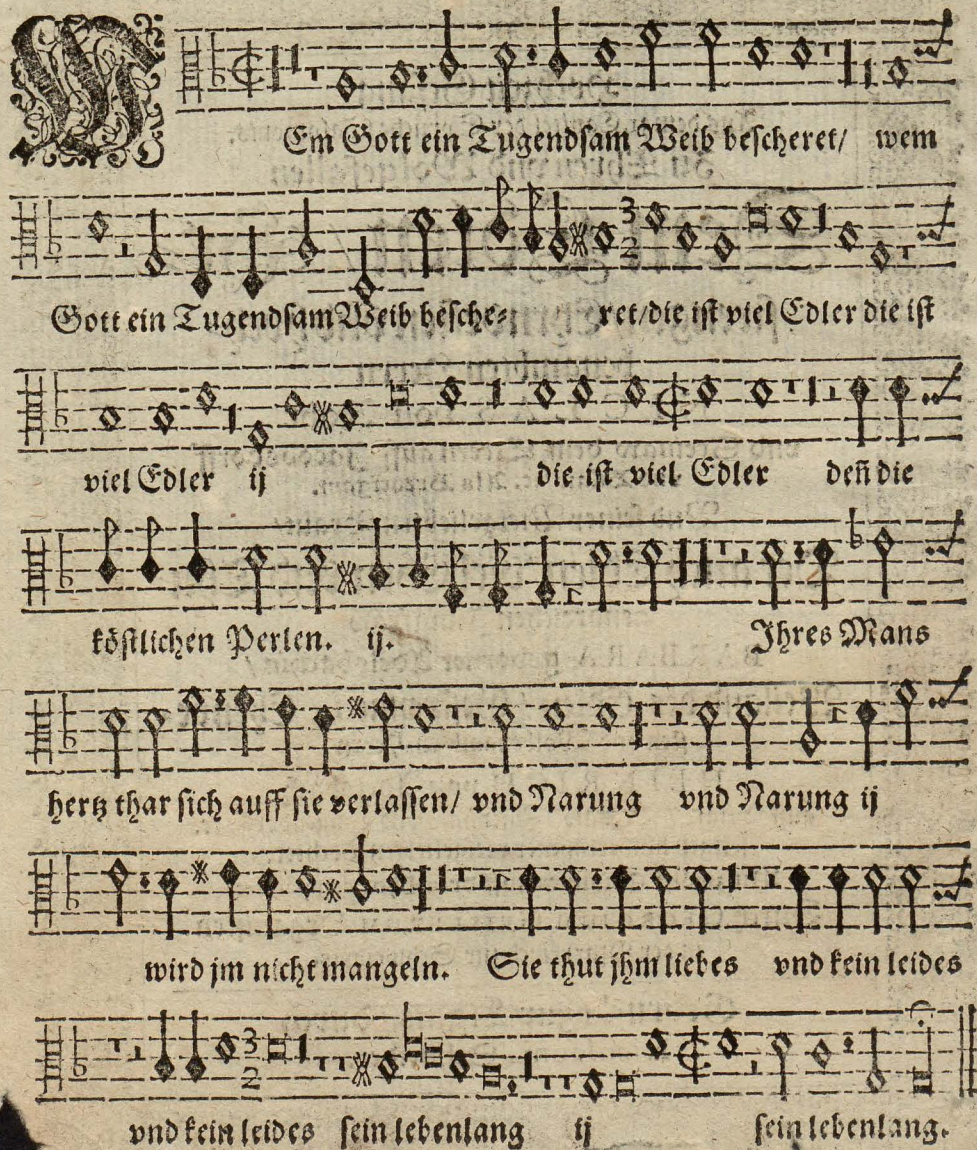 WEm Gott ein Tugendsam Weib bescheret/ wem
Gott ein Tugendsam Weib besche⸗ ret/die ist viel Edler die ist
viel Edler ij die ist viel Edler deñ die
köstlichen Perlen. ij. Ihres Mans
hertz thar sich auff sie verlassen/ vnd Narung vnd Narung ij
wird jm nicht mangeln. Sie thut jhm liebes vnd kein leides
vnd kein leides sein lebenlang ij sein lebenlang.